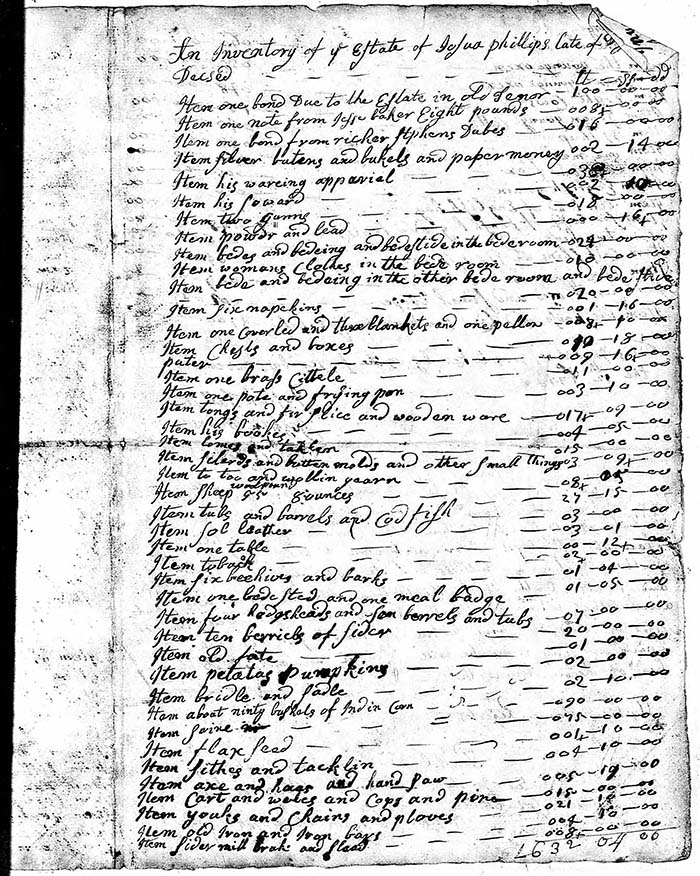 An Inventory of ye Estate of Josua phillips late of
Decsed — lt — sh — dd
Item one bond Due to the Estate in old Tenor 100—00—00
Item one note from Jesse baker Eight pounds 008—00—00
Item one bond from richer Stphens Dabes — 016—00—00
Item silver butens and bukels and paper money 002—14—00
Item his wareing appariel
Item his soward — 002—10—00
Item two gunns — 018—00—00
Item powdr and lead — 000—16—00
Item bedes and bedeing and bedestide in the bede room—024—00—00
Item womans Clothes in the bede room — 00—00
Item bede and bedeing in the other bede room and bede
020—00—00
Item six napekins — 001—16—00
Item one Coverled and three blankets and one pellow — 10—00
Item Chests and boxes — 18—00
puter — 009—16—00
Item one brass Cittele — 11—00—00
Item one pote and frying pon — 003—10—00
Item tongs and fir slice and wooden ware — 09—00
Item his bookes — 004—05—00
Item lomes and taklem — 015—00—00
Item silerds and butten molds and other small things 03—09—00
Item to too and wollin yearn
Item sheep — 27—15—00
Item tubs and barrels and Cod fish — 03—00—00
Item sole leather — 03—01—00
Item one table — 00—12—00
Item toback — 02—00—00
Item six beehives and barks — 01—04—00
Item one bedested and one meal badge — 01—05—00
Item four hodgsheads and berrels and tubs — 07—00—00
Item ten berriels of sider — 20—00—00
Item old — 01—00—00
Item petatas pumpkins — 02—00—00
Item bridle and sadle — 02—10—00
Item about ninty bushels of Indin Corn — 090—00—00
Item swine — 075—00—00
Item flax seed — 004—10—00
Item sithes and tacklin — 004—10—00
Item axe and hags and hand saw
Item Cart and weles and Cops and pins — 005—19—00
Item youks and Chains and ploves — 015—00—00
Item old Iron and Iron bars — 004—10—00
Item sider mill brake and slead — 008—00—00
L632 04 00